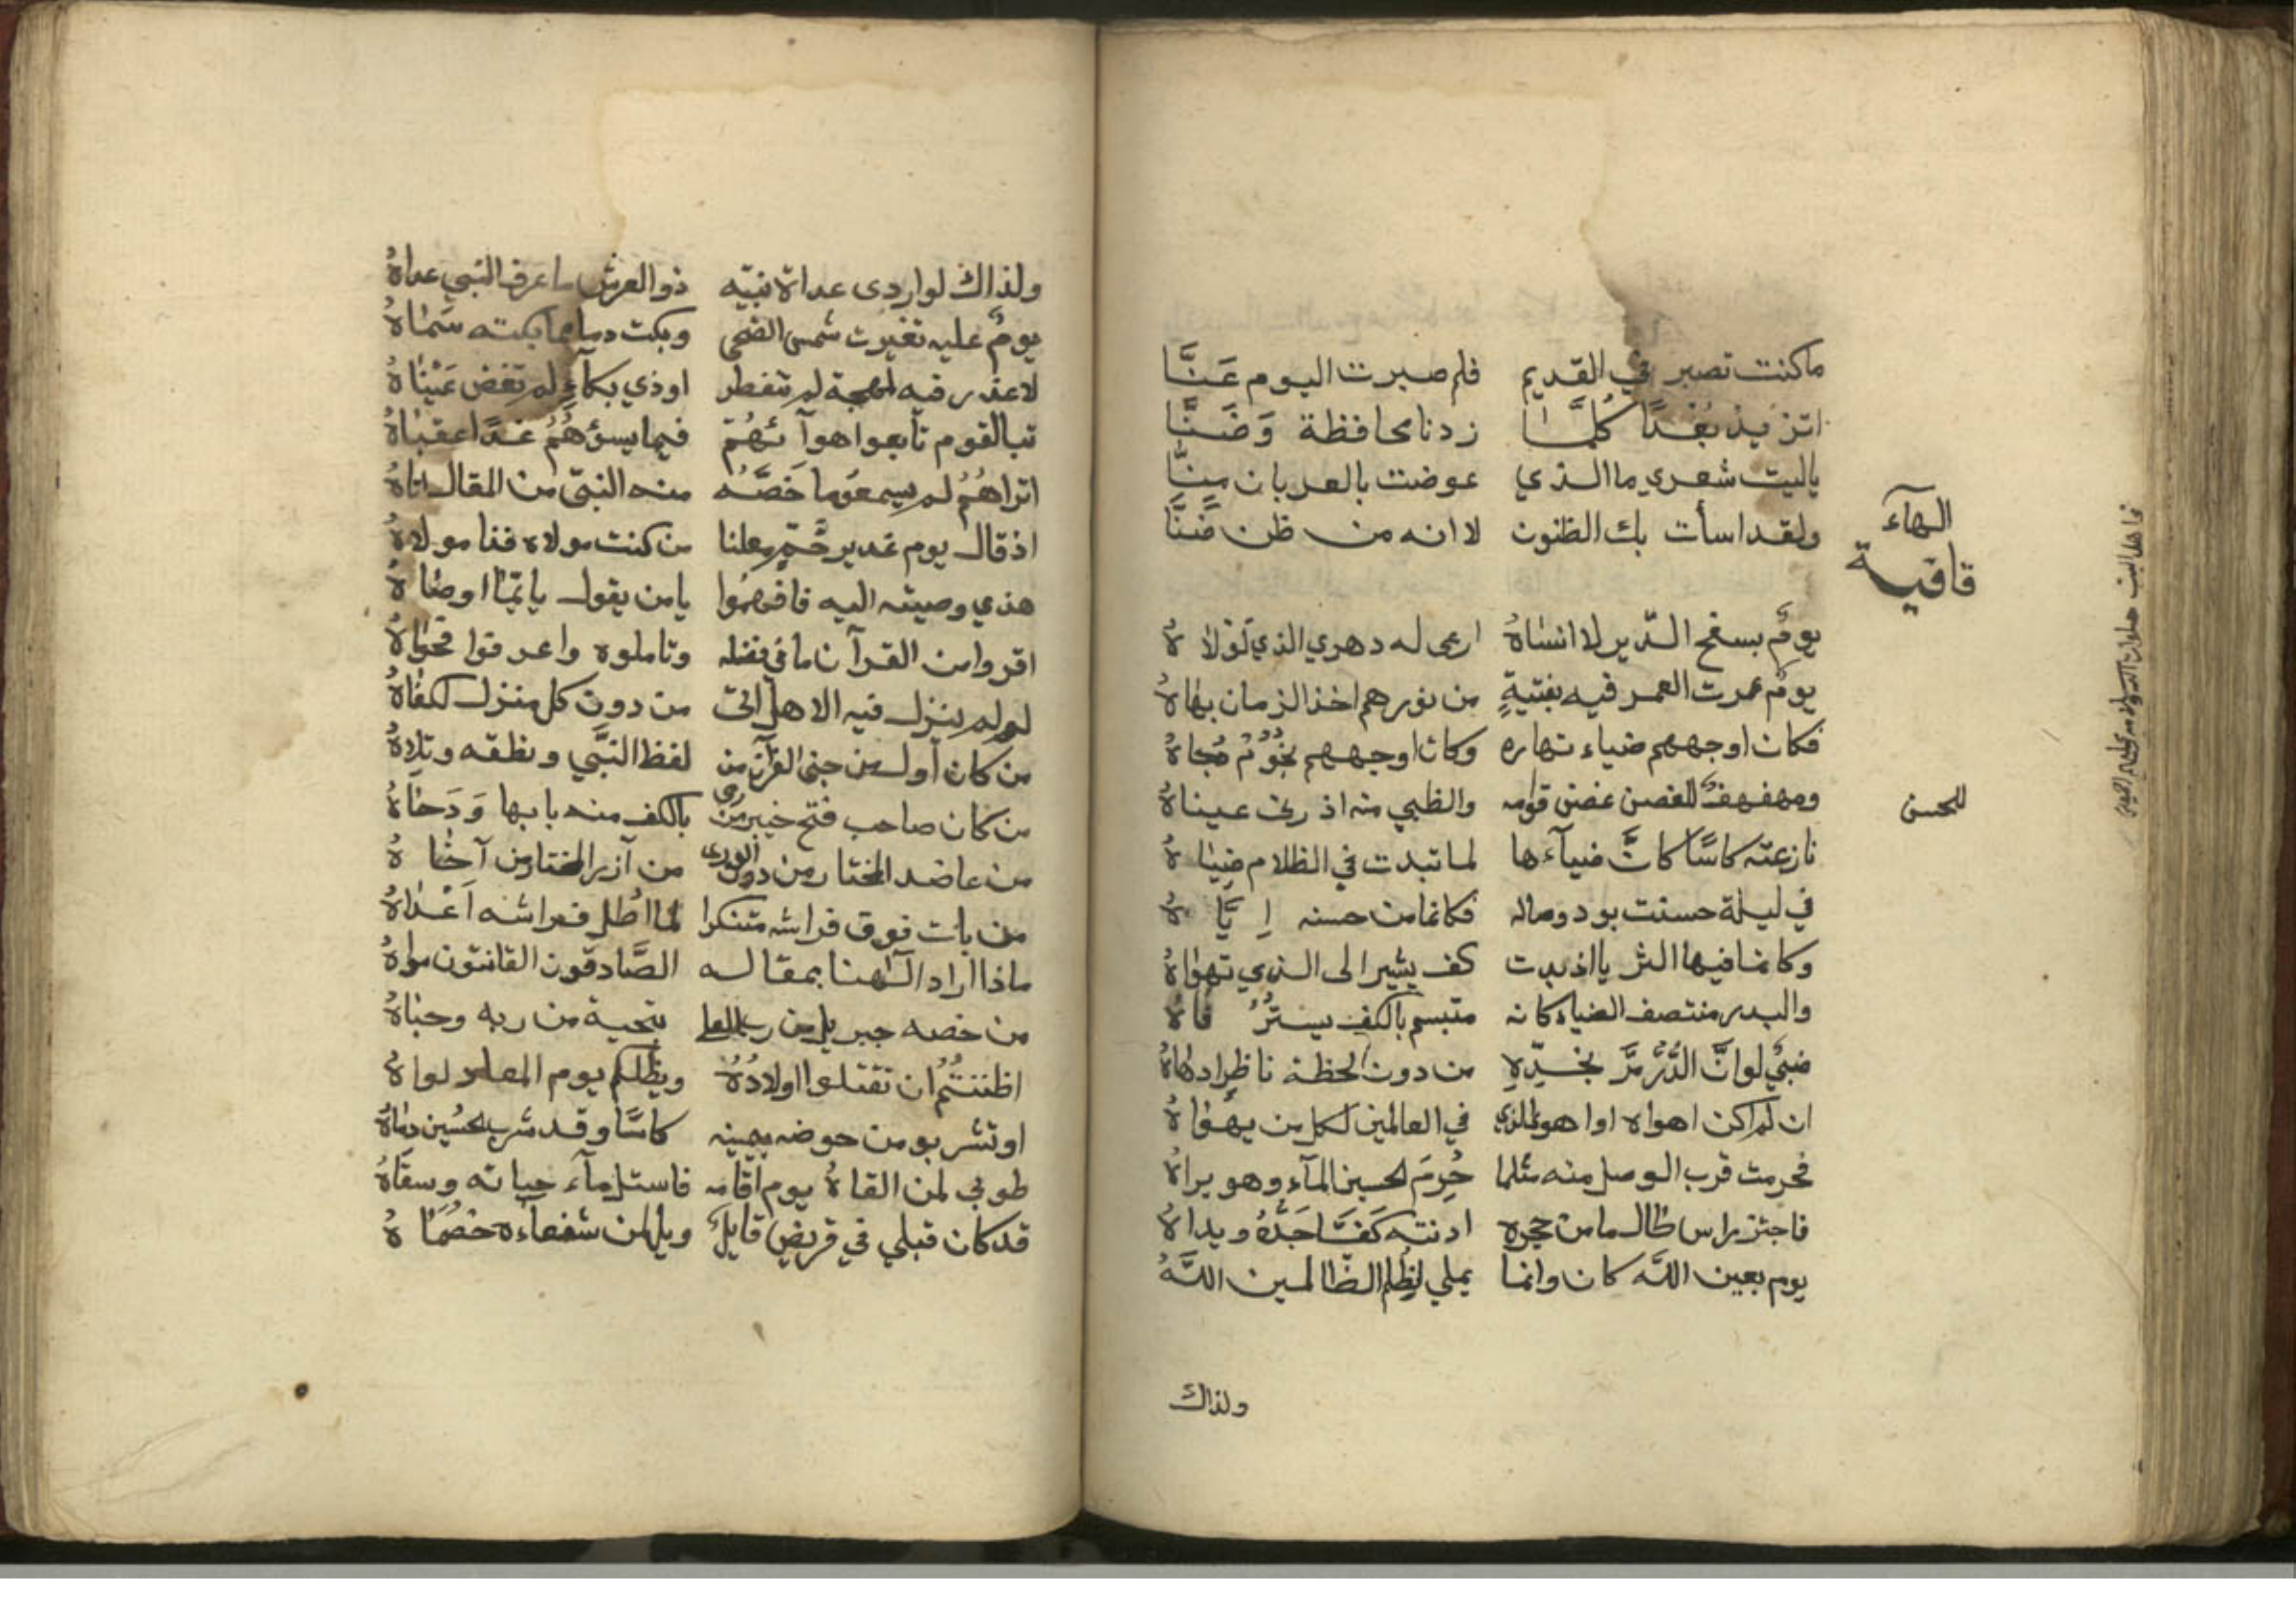 ماكنت تصبر في القديم فلم صبرت اليوم عَنَّا
اتزيد بُعْدًا كُلَّمَا زدنا محافظة وَضَنَّا
ياليت شعري ماالذي عوضت بالعدبان مِنَّا
ولقد اسأت بك الظنون لا انه من ظن ضَنَّا
قافية
الهآء
يومٌ بسفح الدّير لا انسَاهُ ارعى له دهري الذي لَوْلَاهُ
يومٌ عمرت العمر فيه بفتيةٍ من نورهم اخذ الزمان بهَاهُ
فكان اوجههم ضياء نهاره وكان اوجههم نجُوْمُ دُجاهُ
للمحسن
ومهفهفٌ للغصن غصن قوامه والظبي منه اذ رنى عيناهُ
نازعته كاسًا كانَّ ضيآءها لما تبدت في الظلام ضِيَاهُ
في ليلة حسنت بود وصاله فكانما من حسنه اِيَّاهُ
وكانما فيها الثريا اذ بدت كف يشير الى الذي تهوَاهُ
والبدر منتصف الضياء كانه متبسم بالكف يسترُ فَاهُ
ضبيٌ لو انَّ الدُّرَّ مَرَّ بخدِّهِ من دون لحظة ناظرٍ ادمَاهُ
ان لم اكن اهواه او اهوى الذي في العالمين لكل من يهوَاهُ
فحرمت قرب الوصل منه مثلما حُرِمَ لحسين المآء وهو يراهُ
فاجتز راس طال ما من حجره ادنته كَفَّا جَدَّهُ ويداهُ
يوم بعين اللّه كان وانما يملي لظلم الظّالمين اللَّهُ
ولذاك
ولذاك لو اردى عداة نبيّه ذو العرش ما عرف النبي عداهُ
يومٌ عليه تغيرت شمس الضحى وبكت دما مما بكته سَمَاهُ
لاعذر فيه لمهجة لم تنفطر او ذي بكآءٍ لم تفض عَيْنَاهُ
تبا لقوم تابعوا هوآئهُمْ فيما يسؤهُمُ غدًا عقبَاهُ
اتراهُمُ لم يسمعوا ما خَصَّهُ منه النبيّ من المقال اتاهُ
اذ قال يوم غدير خُمٍّ معلنا من كنت مولاه فذا مولاهُ
هذي وصيته اليه فافهمُوا يا من يقول بانَّمَا اوصَاهُ
اقروا من القرآن ما في فضله وتاملوه واعرفوا فحوَاهُ
لو لم ينزل فيه الا هل اتى من دون كل منزل لكفَاهُ
من كان أول من جنى القرآن من لفظ النَّبي ونطقه وتلاهُ
من كان صاحب فتح خيبر من رمى بالكف منه بابها وَدَحَاهُ
من عاضد المختار من دون الورى من آزر المختار من آخَاهُ
من بات فوق فراشه متنكرا لمّا اطل فراشه اَعْدَاهُ
ماذا اراد الٓهنا بمقاله الصَّادقون القانتون سواهُ
من خصه جبريل من رب العلى بتحية من ربه وحبَاهُ
اظننتُمُ ان تقتلوا اولادُهُ ويظلكم يوم المعاد لواهُ
او تشربو من حوضه بيمينه كاسًا وقد شرب لحُسَين دماهُ
طوبي لمن القاهُ يوم اقامه فاستل مآء حياته وسقَاهُ
قد كان قبلي في قريض قايلٌ ويل لمن شفعاءه خصُمَاهُ